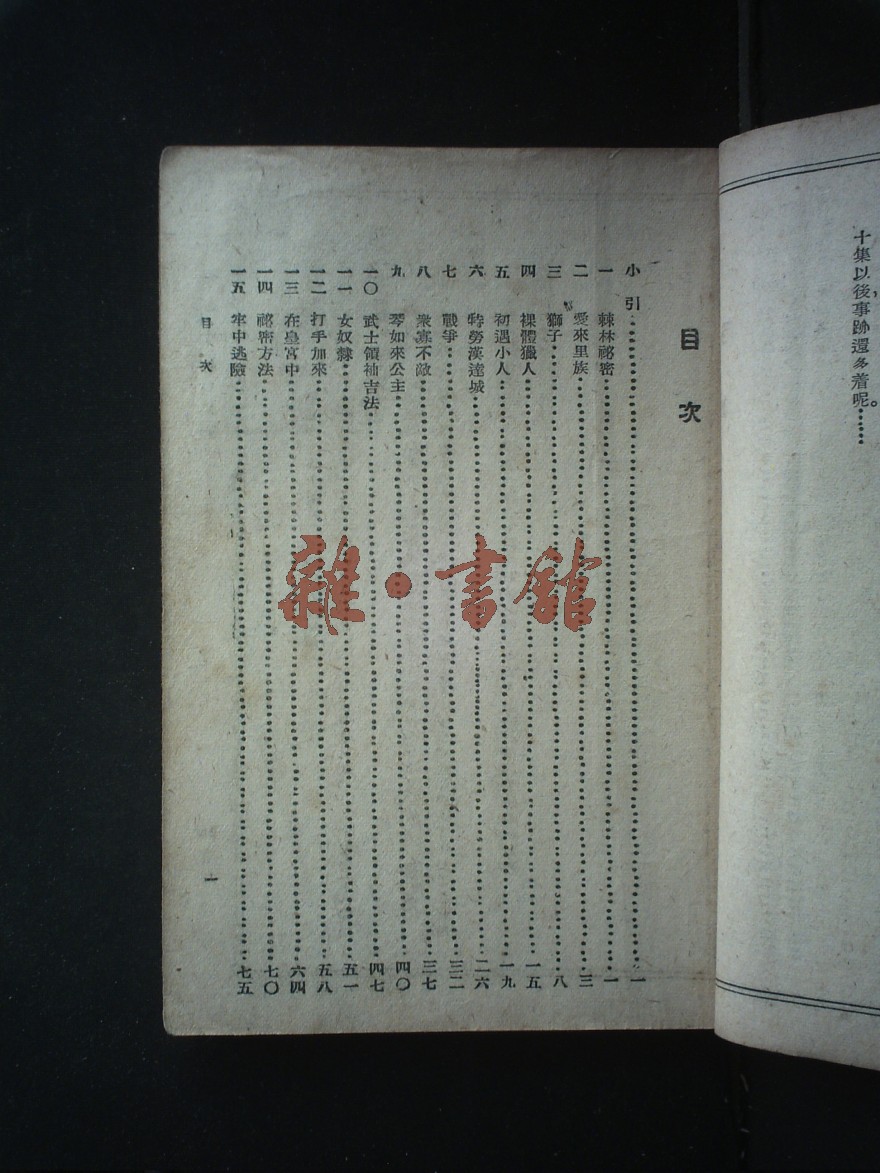 十集以後，事跡還多着呢。……
目次
小引……一
一 棘林祕密……一
二 愛來里族……三
三 獅子……八
四 裸體獵人……一五
五 初遇小人……一九
六 特勞漢達城……二六
七 戰爭……三二
八 衆寡不敵……三七
九 琴如來公主……四〇
一〇 武士領袖吉法……四七
一一 女奴隸……五一
一二 打手加來……五八
一三 在皇宮中……六四
一四 祕密方法……七〇
一五 牢中逃險……七五
目次 一
雜·書館